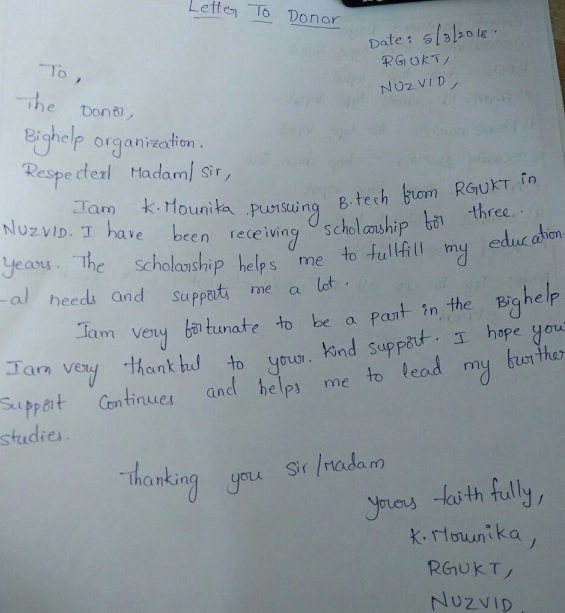 Letter To Donor
Date: 5/3/2018.
RGUKT,
NUZVID,
To,
The Donor,
Bighelp organization.
Respected Madam/ Sir,
Iam K. Mounika pursuing B.tech from RGUKT in
NUZVID. I have been receiving scholarship for three
years. The scholarship helps me to fullfill my education
-al needs and supports me a lot.
Iam very fortunate to be a part in the Bighelp
Iam very thankful to your kind support. I hope you
Support Continues and helps me to lead my further
studies.
Thanking you Sir/Madam
yours faith fully,
K. Mounika,
RGUKT,
NUZVID.